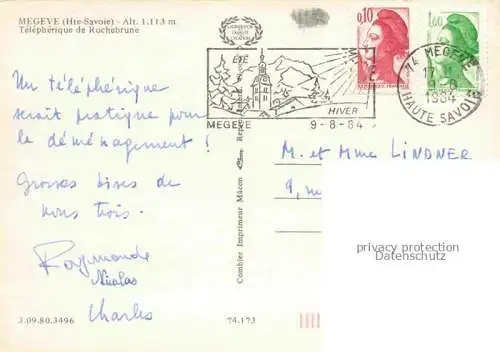 MEGEVE (Hte-Savoie) - Alt. 1.113 m.
Téléphérique de Rochebrune
Un téléphérique
serait pratique pour
le déménagement !
Grosses bises de
nous trois.
Raymonde
Nicolas
Charles
3.09.80.3496
74.173
Combier Imprimeur Mâcon
ÉTÉ
HIVER
MEGEVE
9-8-84
0,10
1,60
74 MEGEVE
1984
HAUTE SAVOIE
M. et Mme LINDNER
9, rue
privacy protection
Datenschutz